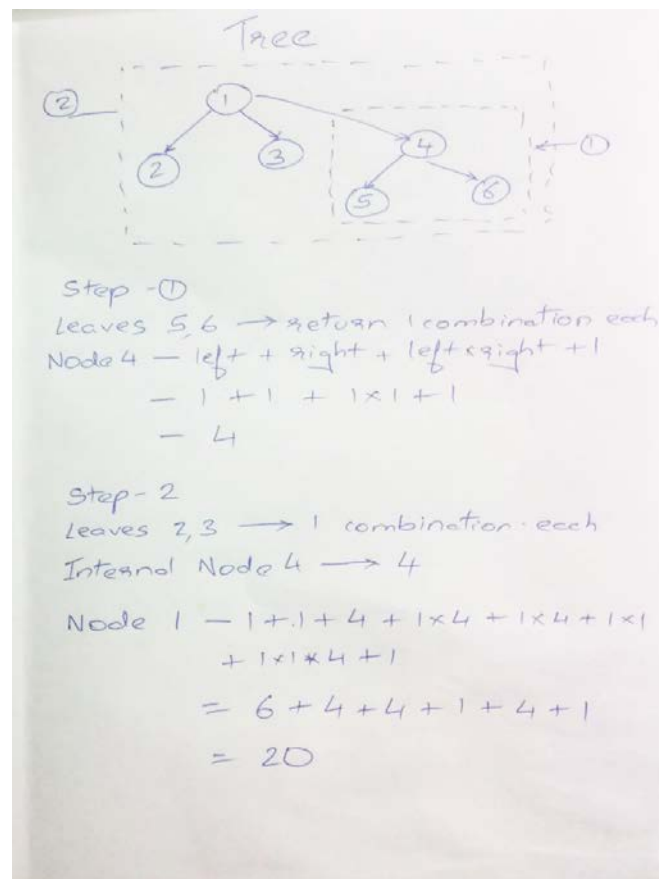 Tree
②
1
4
①
2
3
5
6
Step -①
Leaves 5,6 → return 1 combination each
Node 4 — left + right + left × right + 1
— 1 + 1 + 1×1 + 1
— 4
Step - 2
Leaves 2,3 → 1 combination each
Internal Node 4 → 4
Node 1 — 1 + 1 + 4 + 1×4 + 1×4 + 1×1
+ 1×1×4 + 1
= 6 + 4 + 4 + 1 + 4 + 1
= 20